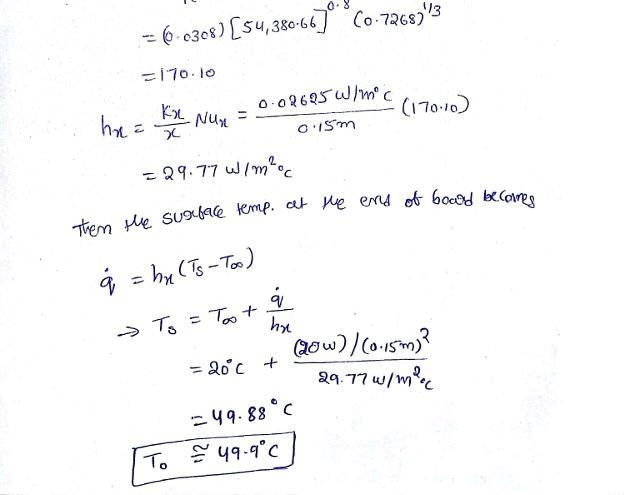 = (0.0308) [54,380.66]^0.8 (0.7268)^1/3
= 170.10
hx = Kx/x Nux = 0.02625 W/m°C / 0.15m (170.10)
= 29.77 W/m²°C
Then the surface temp. at the end of board becomes
q̇ = hx (Ts - T∞)
→ Ts = T∞ + q̇/hx
= 20°C + (20W)/(0.15m)² / 29.77 W/m²°C
= 49.88°C
To ≅ 49.9°C